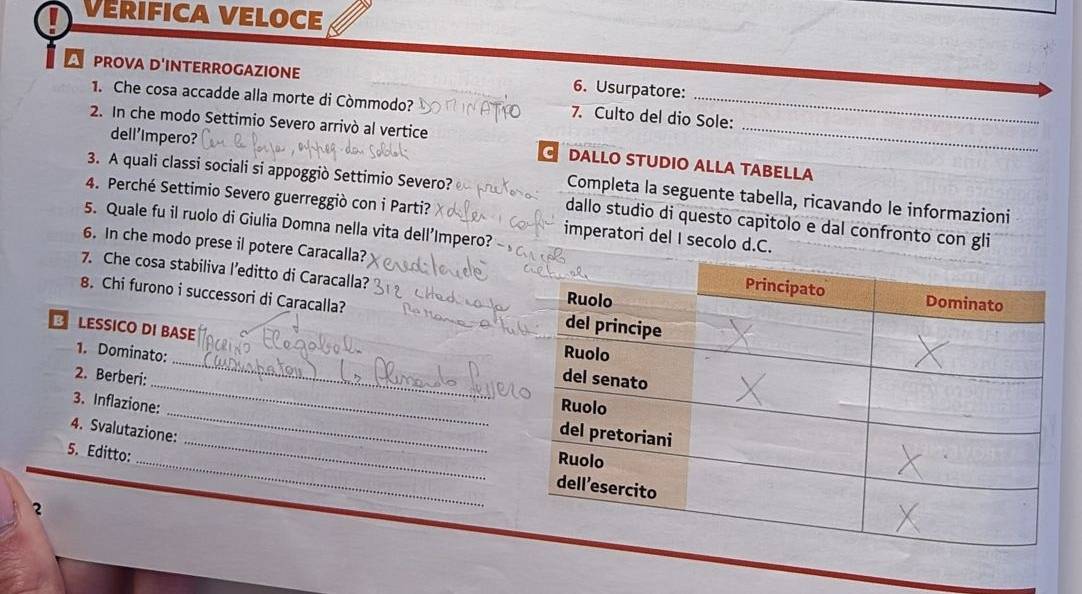 VERIFICA VELOCE
A PROVA D'INTERROGAZIONE
1. Che cosa accadde alla morte di Còmmodo? DOMINATO
2. In che modo Settimio Severo arrivò al vertice
dell'Impero? Con la forza, appog. dai soldati
3. A quali classi sociali si appoggiò Settimio Severo?
4. Perché Settimio Severo guerreggiò con i Parti? X difen. i confi
5. Quale fu il ruolo di Giulia Domna nella vita dell'Impero? → circolo
6. In che modo prese il potere Caracalla? X
7. Che cosa stabiliva l'editto di Caracalla? 312 cittadinanza
romana a tutti
8. Chi furono i successori di Caracalla?
MACRINO Elagabalo
Alessandro Severo
B LESSICO DI BASE
1. Dominato:
2. Berberi:
3. Inflazione:
4. Svalutazione:
5. Editto:
2
6. Usurpatore:
7. Culto del dio Sole:
C DALLO STUDIO ALLA TABELLA
Completa la seguente tabella, ricavando le informazioni
dallo studio di questo capitolo e dal confronto con gli
imperatori del I secolo d.C.
Principato Dominato
Ruolo
del principe X X
Ruolo
del senato X
Ruolo
dei pretoriani X
Ruolo
dell'esercito X